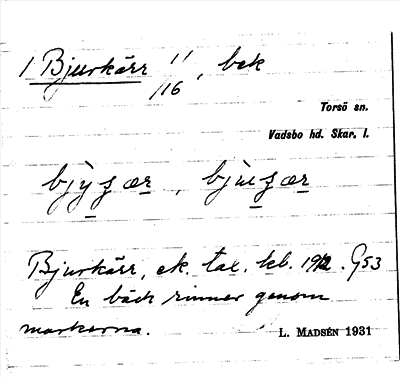 1 Bjurkärr 11/116, bek
Torsö sn.
Vadsbo hd. Skar. l.
Bjurkärr, ek. tax. kb. 1912. G53
En bäck rinner genom
markerna.
L. MADSÉN 1931